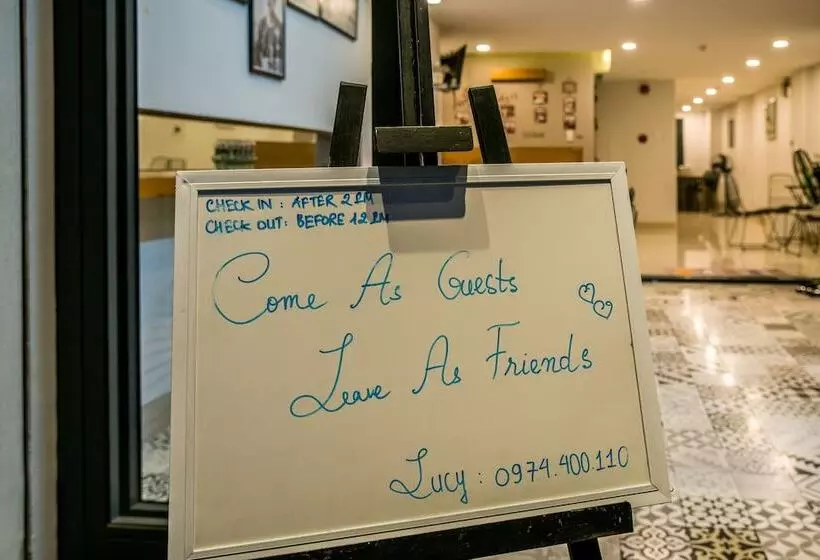 CHECK IN : AFTER 2 PM
CHECK OUT: BEFORE 12 PM
Come As Guests
Leave As Friends
Lucy : 0974.400.110